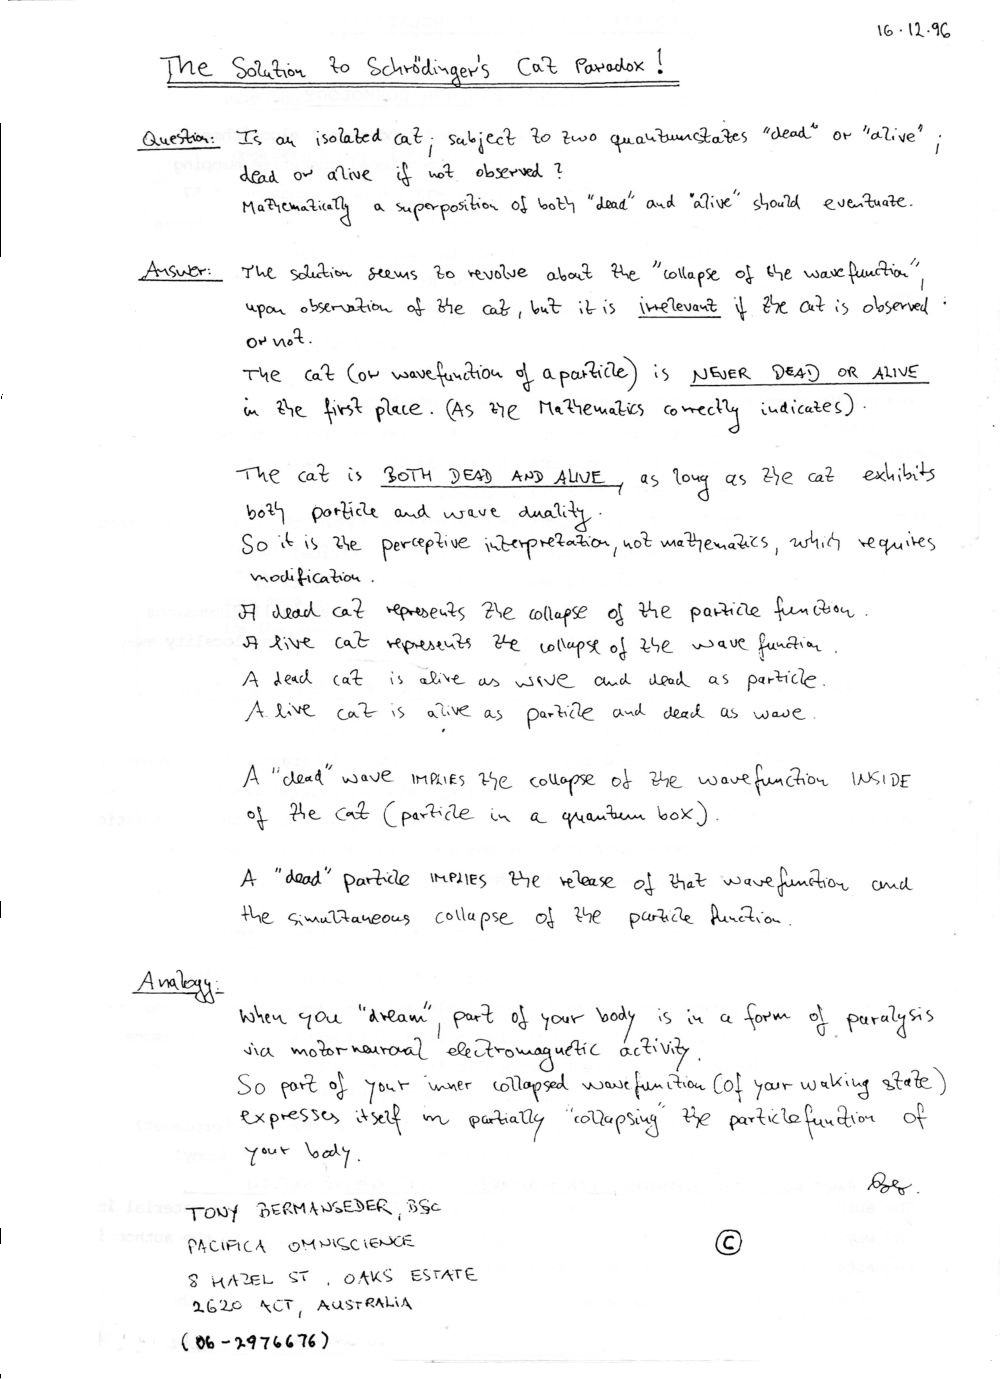 16.12.96
The Solution to Schrödinger's Cat Paradox!
Question: Is an isolated cat, subject to two quantumstates "dead" or "alive",
dead or alive if not observed?
Mathematically a superposition of both "dead" and "alive" should eventuate.
Answer: The solution seems to revolve about the "collapse of the wavefunction",
upon observation of the cat, but it is irrelevant if the cat is observed
or not.
The cat (or wavefunction of a particle) is NEVER DEAD OR ALIVE
in the first place. (As the Mathematics correctly indicates).
The cat is BOTH DEAD AND ALIVE, as long as the cat exhibits
both particle and wave duality.
So it is the perceptive interpretation, not mathematics, which requires
modification.
A dead cat represents the collapse of the particle function.
A live cat represents the collapse of the wave function.
A dead cat is alive as wave and dead as particle.
A live cat is alive as particle and dead as wave.
A "dead" wave IMPLIES the collapse of the wavefunction INSIDE
of the cat (particle in a quantum box).
A "dead" particle IMPLIES the release of that wavefunction and
the simultaneous collapse of the particle function.
Analogy:
When you "dream", part of your body is in a form of paralysis
via motorneuronal electromagnetic activity.
So part of your inner collapsed wavefunction (of your waking state)
expresses itself in partially "collapsing" the particlefunction of
your body.
TONY BERMANSEDER, BSc
PACIFICA OMNISCIENCE
©
8 HAZEL ST, OAKS ESTATE
2620 ACT, AUSTRALIA
(06-2976676)